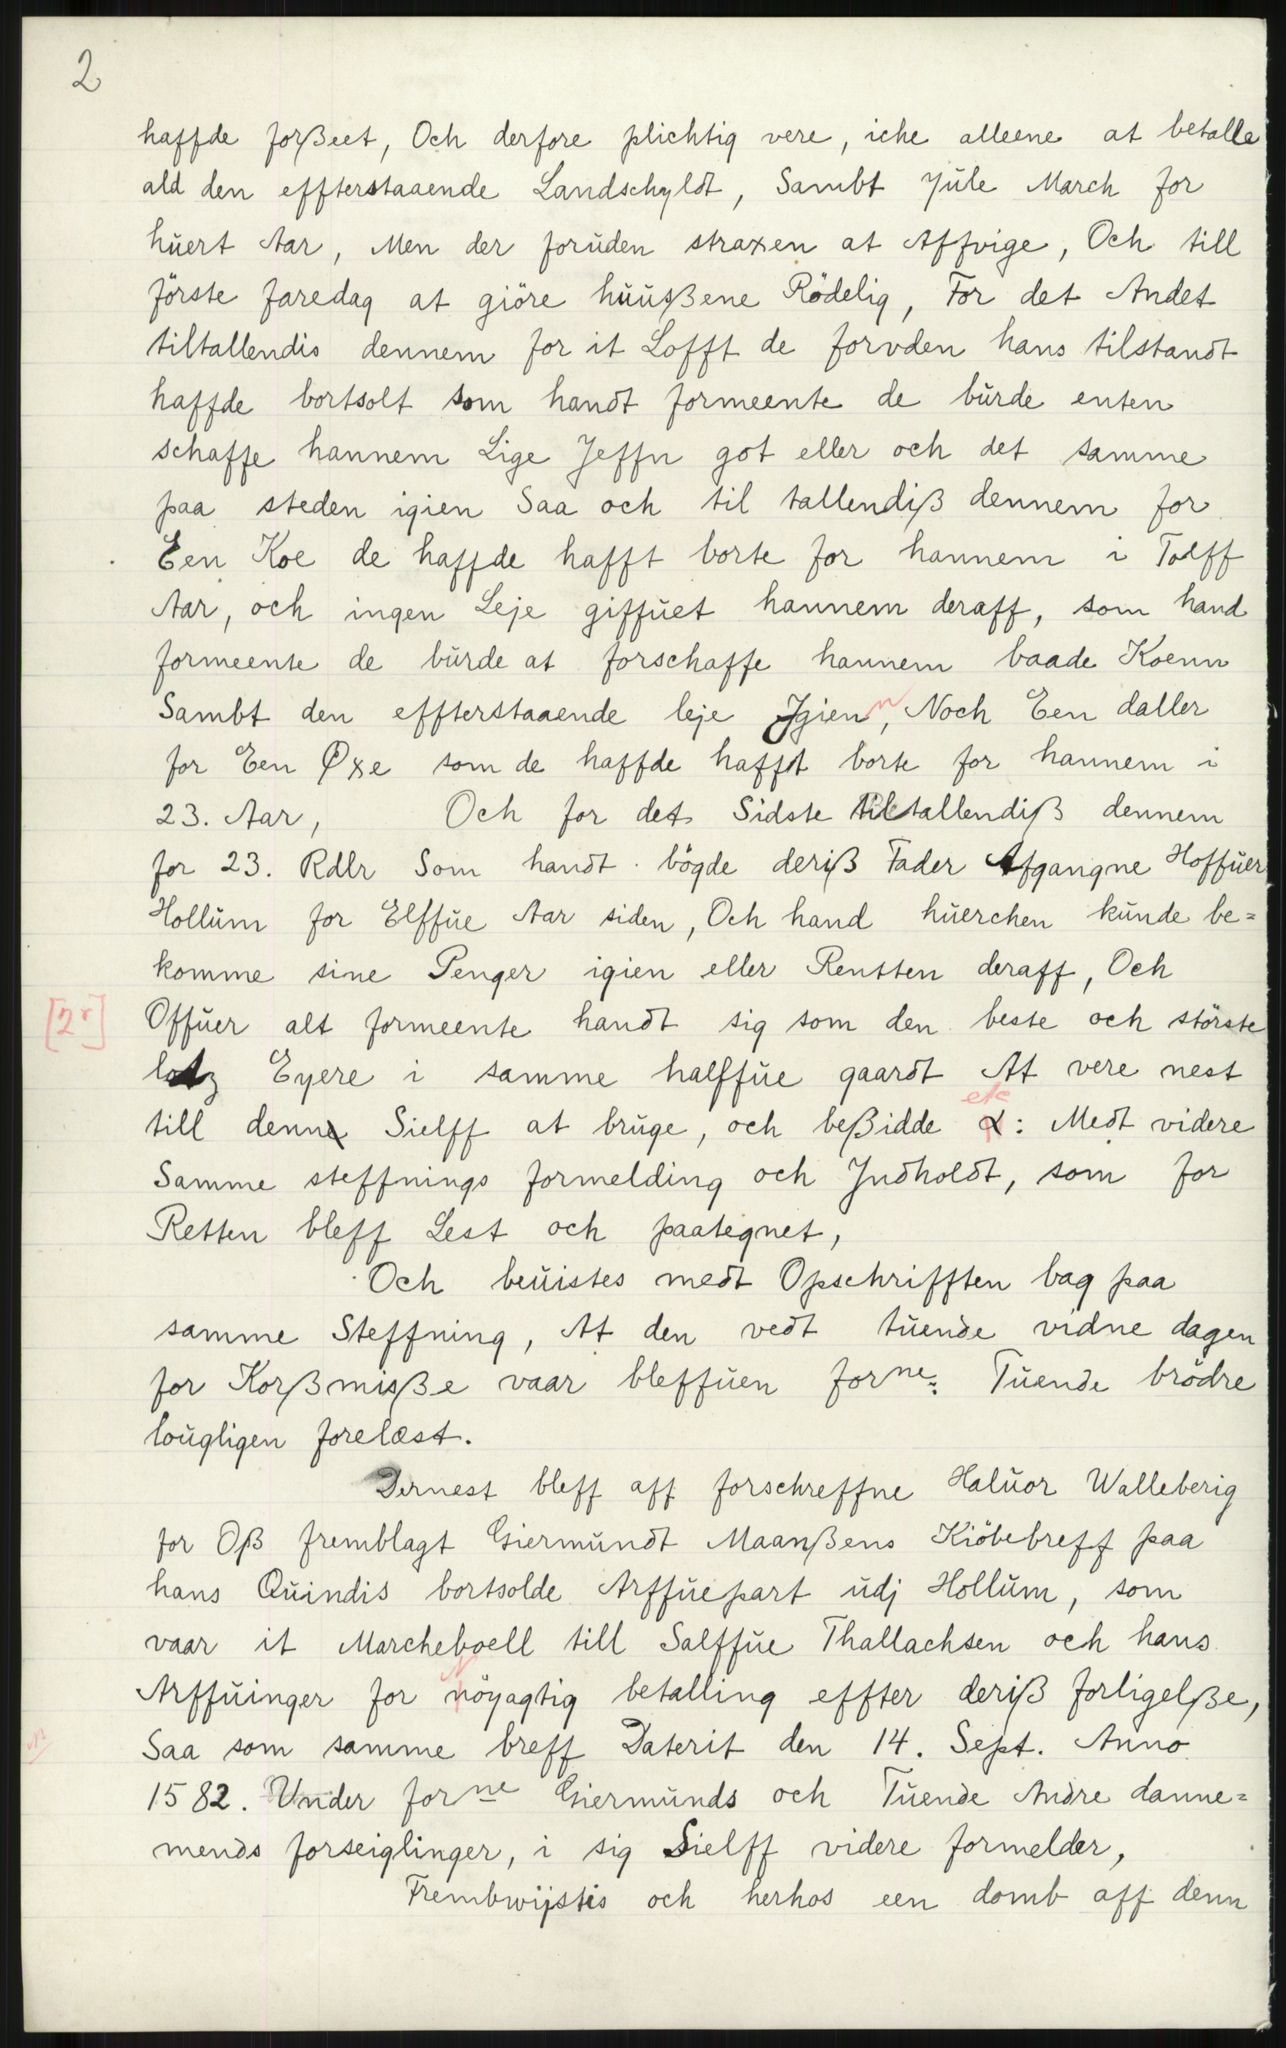 2
haffde forßeet, Och derfore plichtig vere, iche alleene at betalle
ald den effterstaaende Landschyldt, Sambt Jule March for
huert Aar, Men der foruden straxen at Affvige, Och till
förste faredag at giöre huußene Rödelig, For det Andet
tiltallendis dennem for it Lofft de forvden hans tilstandt
haffde bortsolt som handt formeente de burde enten
schaffe hannem Lige Jeffn got eller och det samme
paa steden igien Saa och til tallendiß dennem for
Een Koe de haffde hafft borte for hannem i Tolff
Aar, och ingen Leje giffuet hannem deraff, som hand
formeente de burde at forschaffe hannem baade Koenn
Sambt den effterstaaende leje Jgien, Noch Een daller
for Een Oxe som de haffde hafft borte for hannem i
23. Aar, Och for det Sidste tiltallendiß dennem
for 23. Rdlr Som handt bögde deriß Fader Afgangne Hoffuer
Hollum for Elffue Aar siden, Och hand huerchen kunde be=
komme sine Penger igien eller Rentten deraff, Och
[2r] Offuer alt formeente handt sig som den beste och störste
lotz Eyere i samme halffue gaardt At vere nest
till denn Sielff at bruge, och beßidde etc: Medt videre
Samme steffnings formelding och Jndholdt, som for
Retten bleff Lest och paategnet,
Och beuistes medt Opschrifften bag paa
samme Steffning, At den vedt tuende vidne dagen
for Korßmiße vaar bleffuen forne: Tuende brödre
lougligen forelæst.
Dernest bleff aff forschreffne Haluor Walleberig
for Oß fremblagt Giermundt Maanßens Kiöbebreff paa
hans Quindis bortsolde Arffuepart udj Hollum, som
vaar it Marcheboell till Salffue Thallachsen och hans
Arffuinger for Nöyagtig betalling effter deriß forligelße,
Saa som samme breff Daterit den 14. Sept. Anno
1582. Under forne Giermunds och Tuende Andre danne=
mends forseiglinger, i sig Sielff videre formelder,
Frembwijstis och herhos een domb aff denn